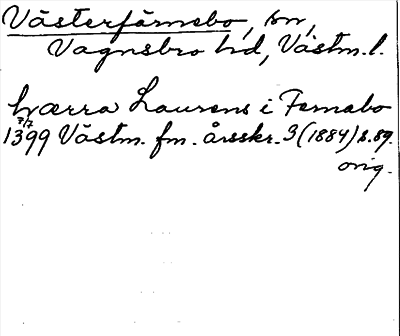 Västerfärnebo, sn,
Vagnsbro hd, Västm. l.
hværra Laurens i Fernabo
7/7
1399 Västm. fm. årsskr. 3 (1884) s. 89.
orig.